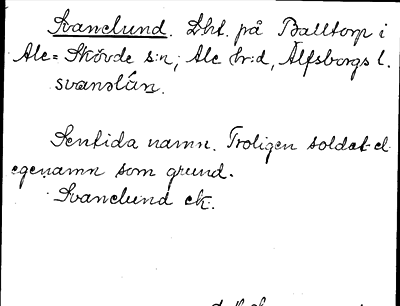 Svanelund. Lht. på Balltorp i
Ale=Skövde s:n, Ale hr:d, Älfsborgs l.
svanəlán.
Sentida namn. Troligen soldat- el.
egenamn som grund.
Svanelund ek.